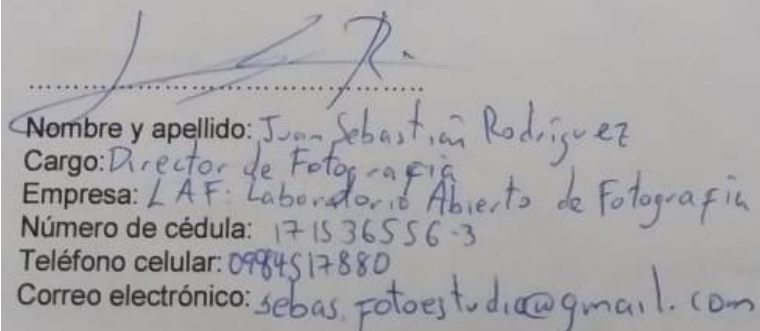 Nombre y apellido: Juan Sebastián Rodríguez
Cargo: Director de Fotografía
Empresa: LAF: Laboratorio Abierto de Fotografía
Número de cédula: 171536556-3
Teléfono celular: 0984517880
Correo electrónico: sebas.fotoestudio@gmail.com